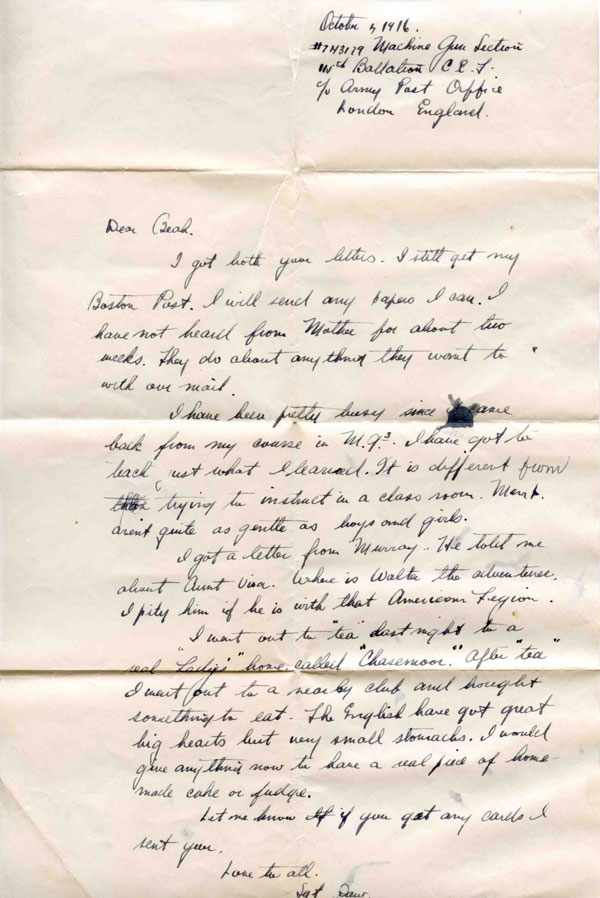 October 4, 1916.
#743179 Machine Gun Section
115th Battalion C.E.F.
c/o Army Post Office
London England.
Dear Beah.
I got both your letters. I still get my
Boston Post. I will send any papers I can. I
have not heard from Mother for about two
weeks. They do about anything they want to
with our mail.
I have been pretty busy since I came
back from my course in M.G's. I have got to
teach just what I learned. It is different from
trying to instruct in a class room. Men
arent quite as gentle as boys and girls.
I got a letter from Murray. He told me
about Aunt Visa. Where is Walter the adventurer.
I pity him if he is with that American Legion.
I went out to "tea" last night to a
real "Lady's" home called "Chasemoor." After "tea"
I went out to a nearby club and bought
something to eat. The English have got great
big hearts but very small stomachs. I would
give anything now to have a real piece of home-
made cake or fudge.
Let me know if you get any cards I
sent you.
Love to all.
Sgt.